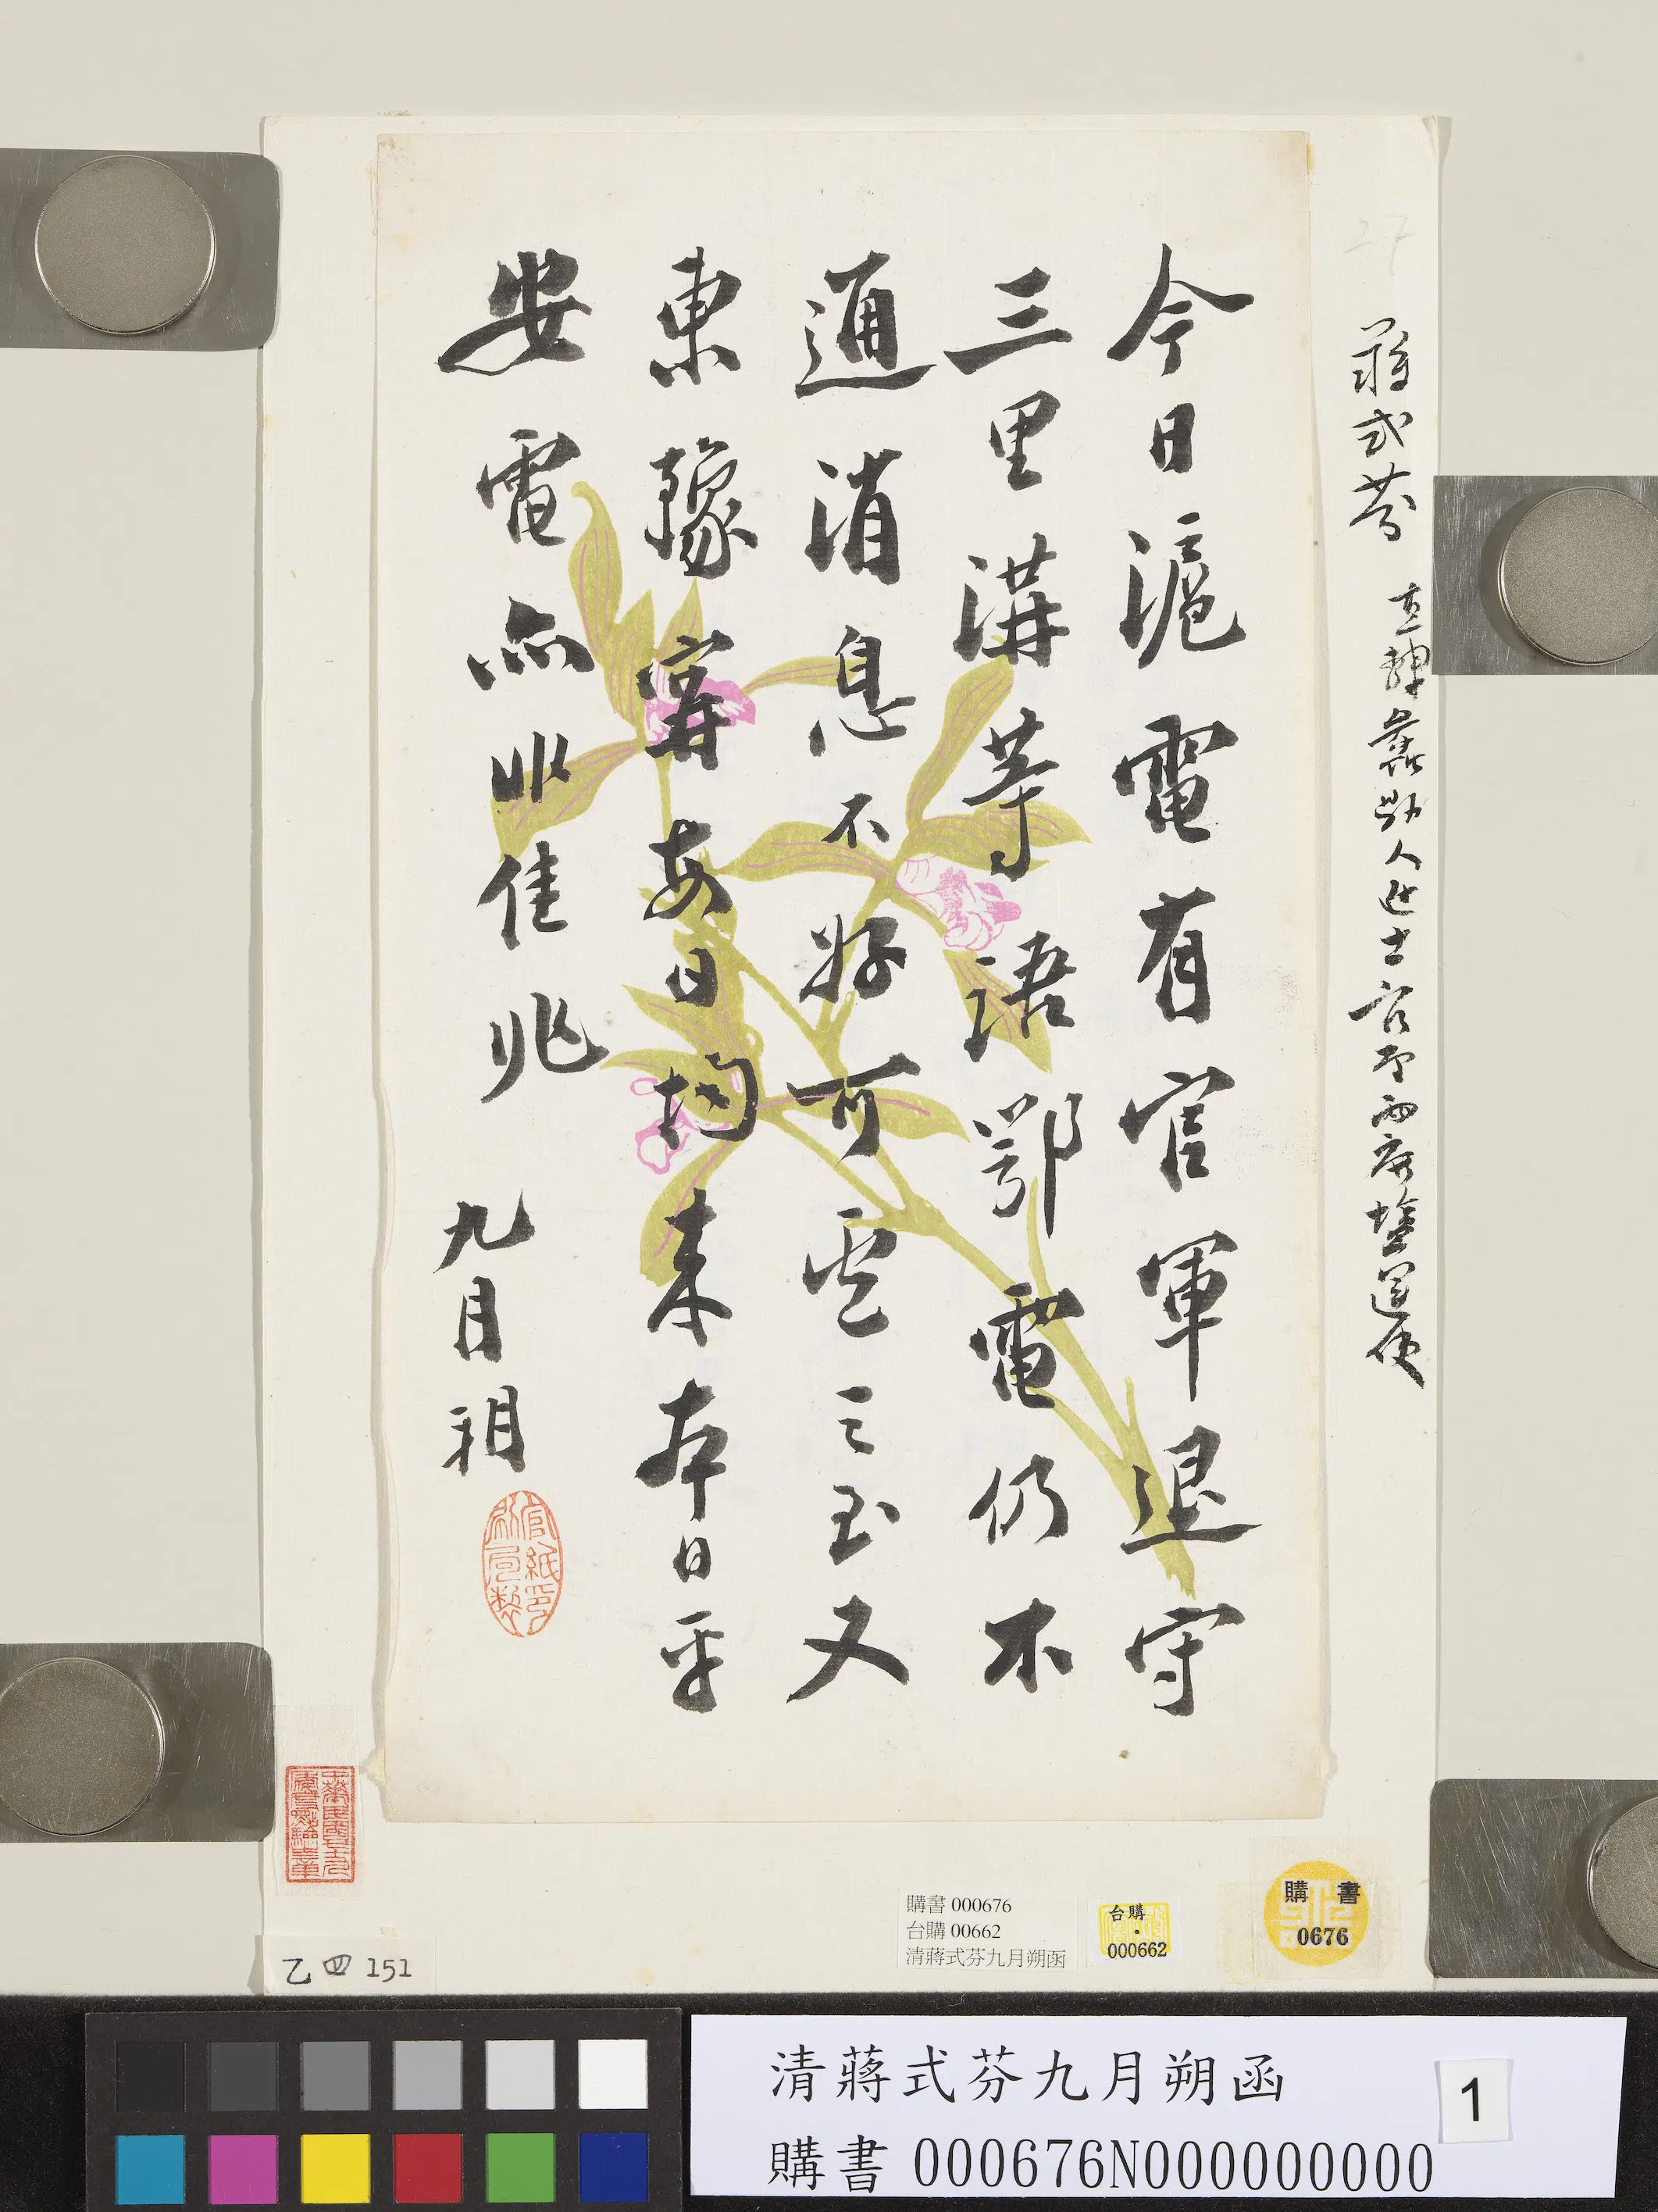 今日滬電有官軍退守
三里溝等語鄂電仍不
通消息不好可電之至又
東豫寄安日均來本日平
安電亦非佳兆
九月朔
蔣式芬 直隸蠡縣人進士官至兩廣鹽運使
官紙印刷局製
購書 000676
台購 00662
清蔣式芬九月朔函
台購
000662
購書
0676
乙 四 151
清蔣式芬九月朔函
1
購書 000676N000000000